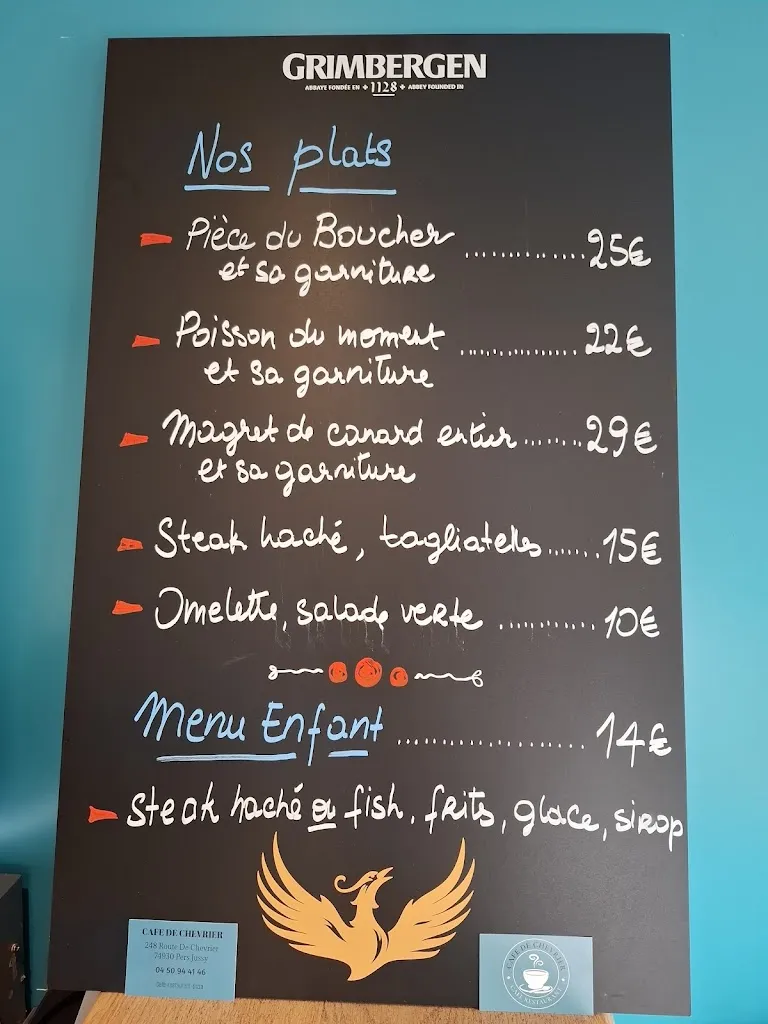 GRIMBERGEN
ABBAYE FONDÉE EN 1128 ABBEY FOUNDED IN
Nos plats
Pièce du Boucher .............. 25€
et sa garniture
Poisson du moment .............. 22€
et sa garniture
Magret de canard entier ....... 29€
et sa garniture
Steak haché, tagliatelles ...... 15€
Omelette, salade verte ........... 10€
Menu Enfant .................. 14€
Steak haché ou fish, frits, glace, sirop
CAFE DE CHEVRIER
248 Route De Chevrier
74930 Pers Jussy
04 50 94 41 46
CAFE DE CHEVRIER
CAFE RESTAURANT